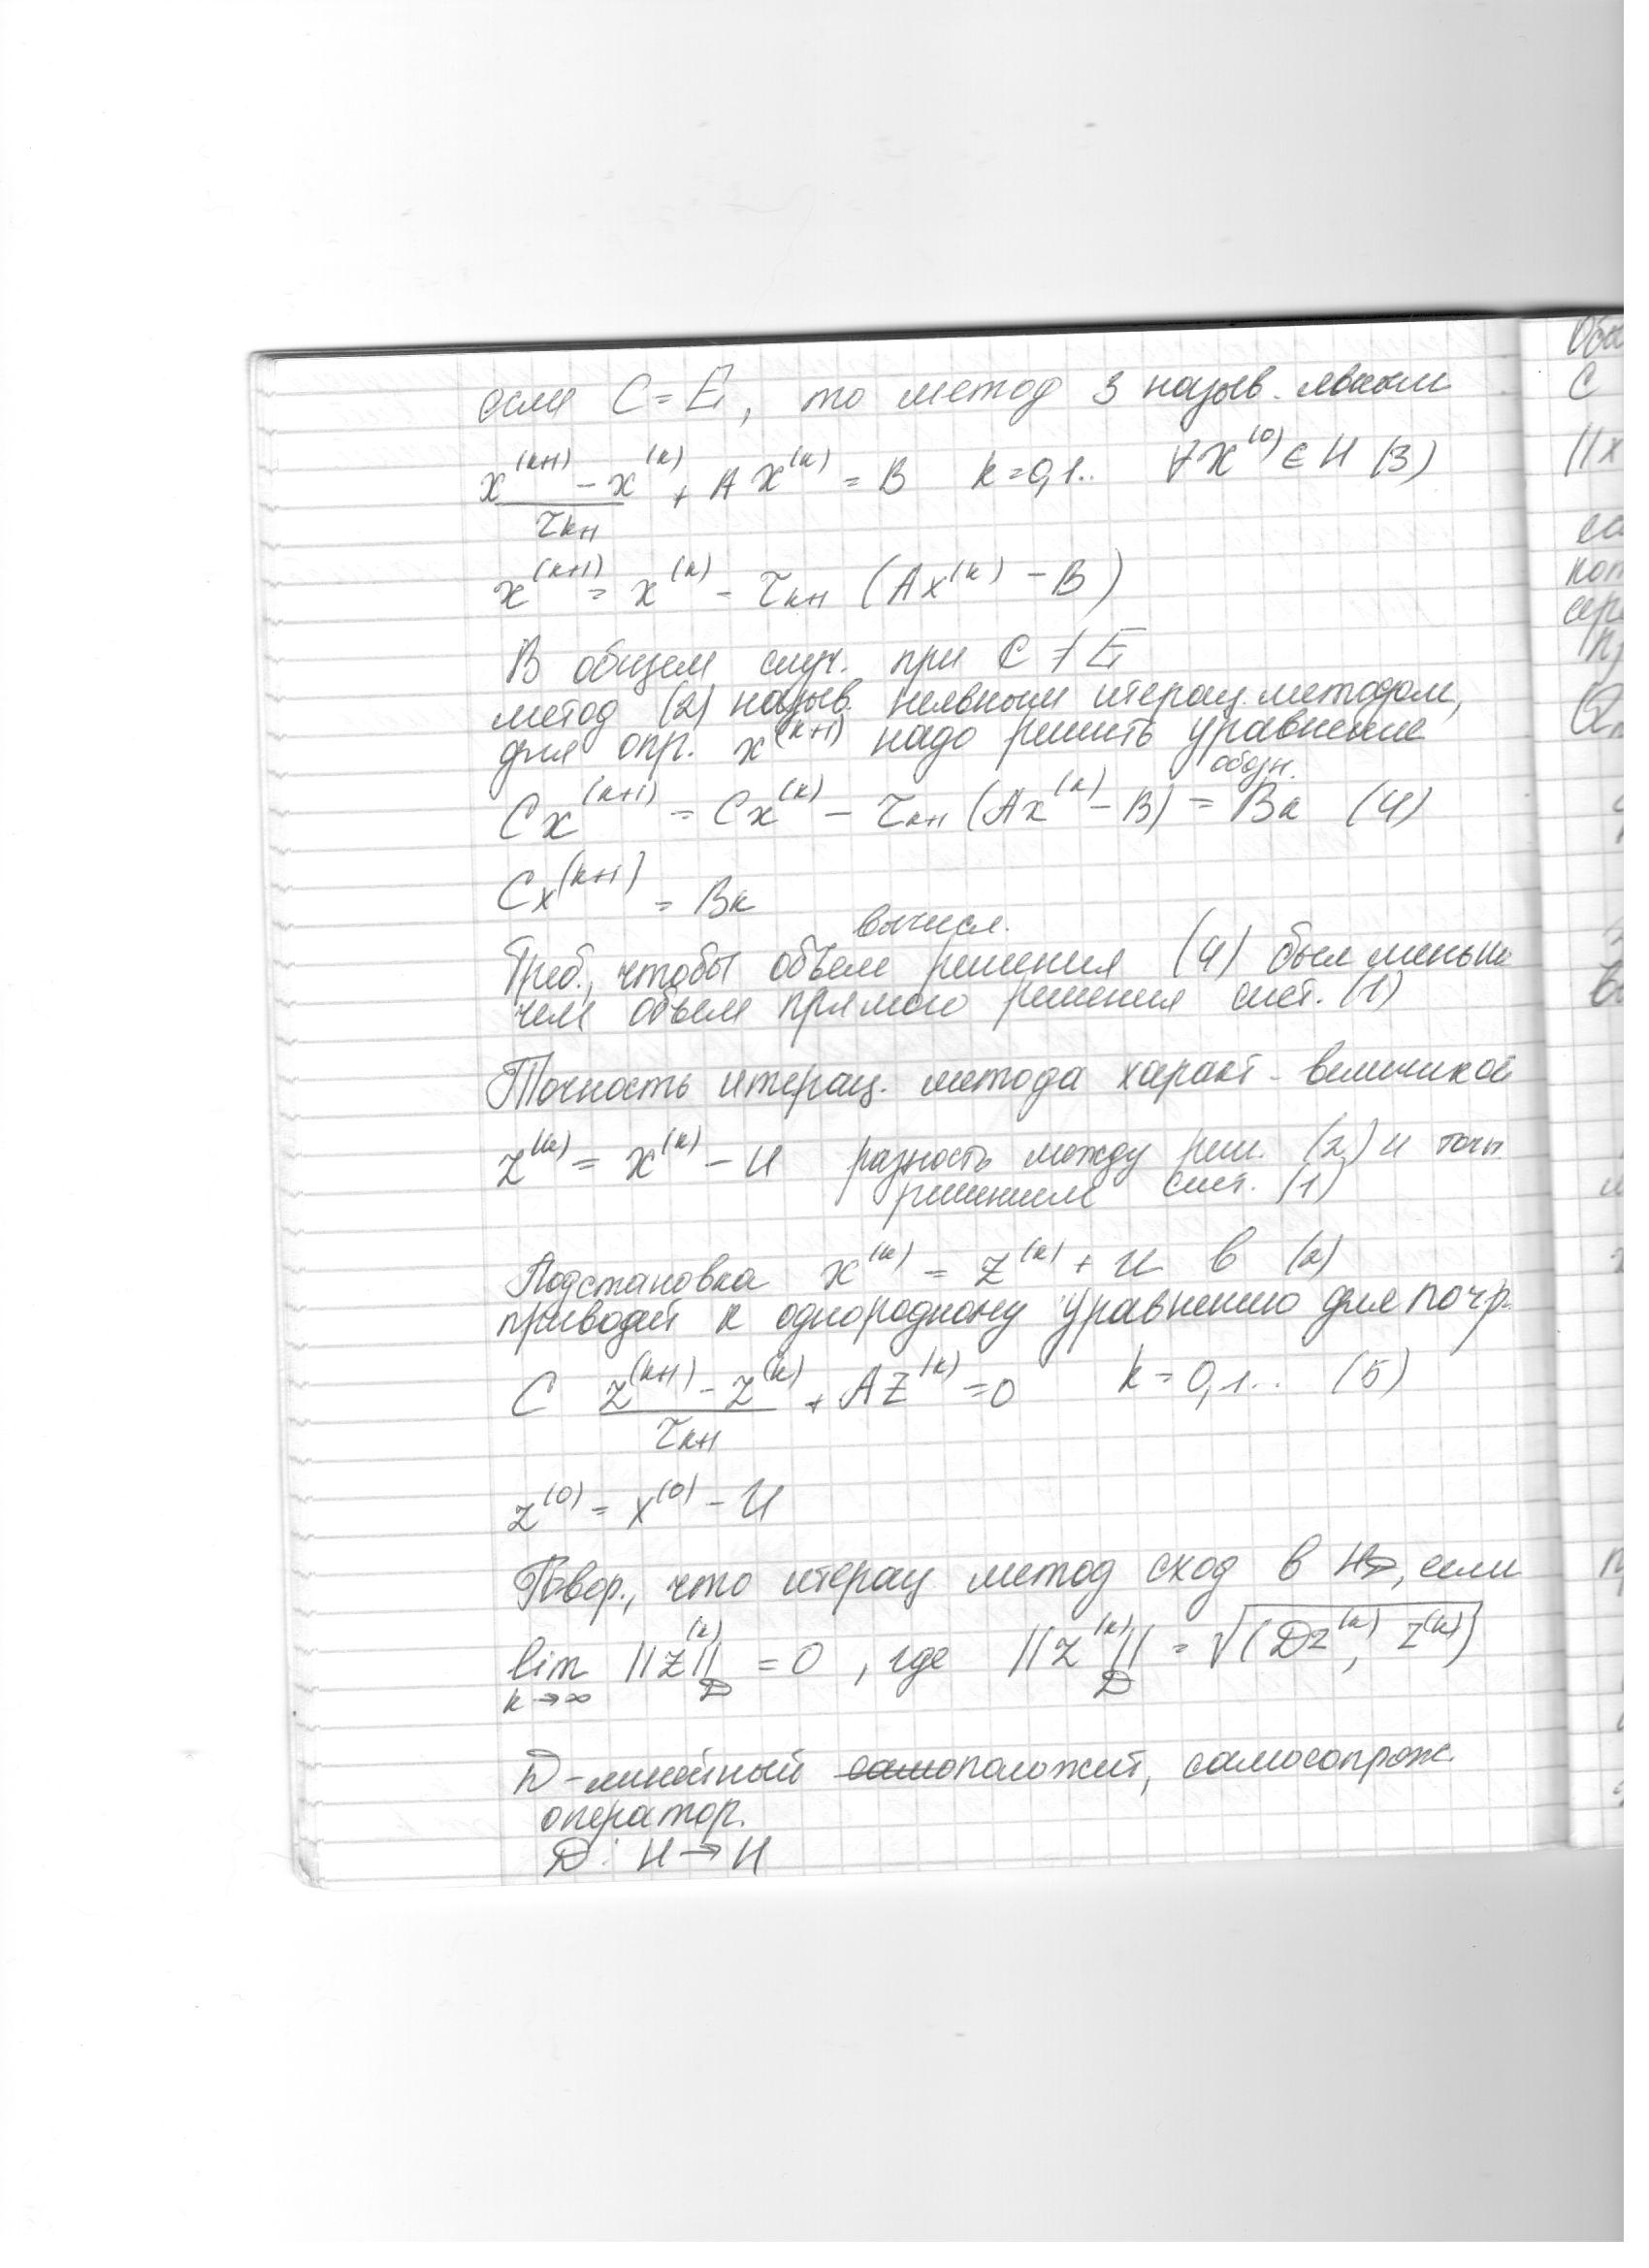 если C = E, то метод 3 назыв. явным
(x^(k+1) - x^(k)) / τ_k+1 + A x^(k) = B   k = 0,1..   ∀ x^(0) ∈ H (3)
x^(k+1) = x^(k) - τ_k+1 (A x^(k) - B)
В общем случ. при C ≠ E
метод (2) назыв. неявным итерац. методом,
для опр. x^(k+1) надо решить уравнение
обозн.
C x^(k+1) = C x^(k) - τ_k+1 (A x^(k) - B) = B_k (4)
C x^(k+1) = B_k
вычисл.
Треб., чтобы объем решения (4) был меньше
чем объем прямого решения сист. (1)
Точность итерац. метода характ. величиной
z^(k) = x^(k) - u разность между реш. (2) и точн.
решением сист. (1)
Подстановка x^(k) = z^(k) + u в (2)
приводит к однородному уравнению для погр.
C (z^(k+1) - z^(k)) / τ_k+1 + A z^(k) = 0   k = 0,1.. (5)
z^(0) = x^(0) - u
Говор., что итерац метод сход в H_D, если
lim_k→∞ ||z^(k)||_D = 0, где ||z^(k)||_D = √(D z^(k), z^(k))
D - линейный положит, самосопряж.
оператор.
D : H → H